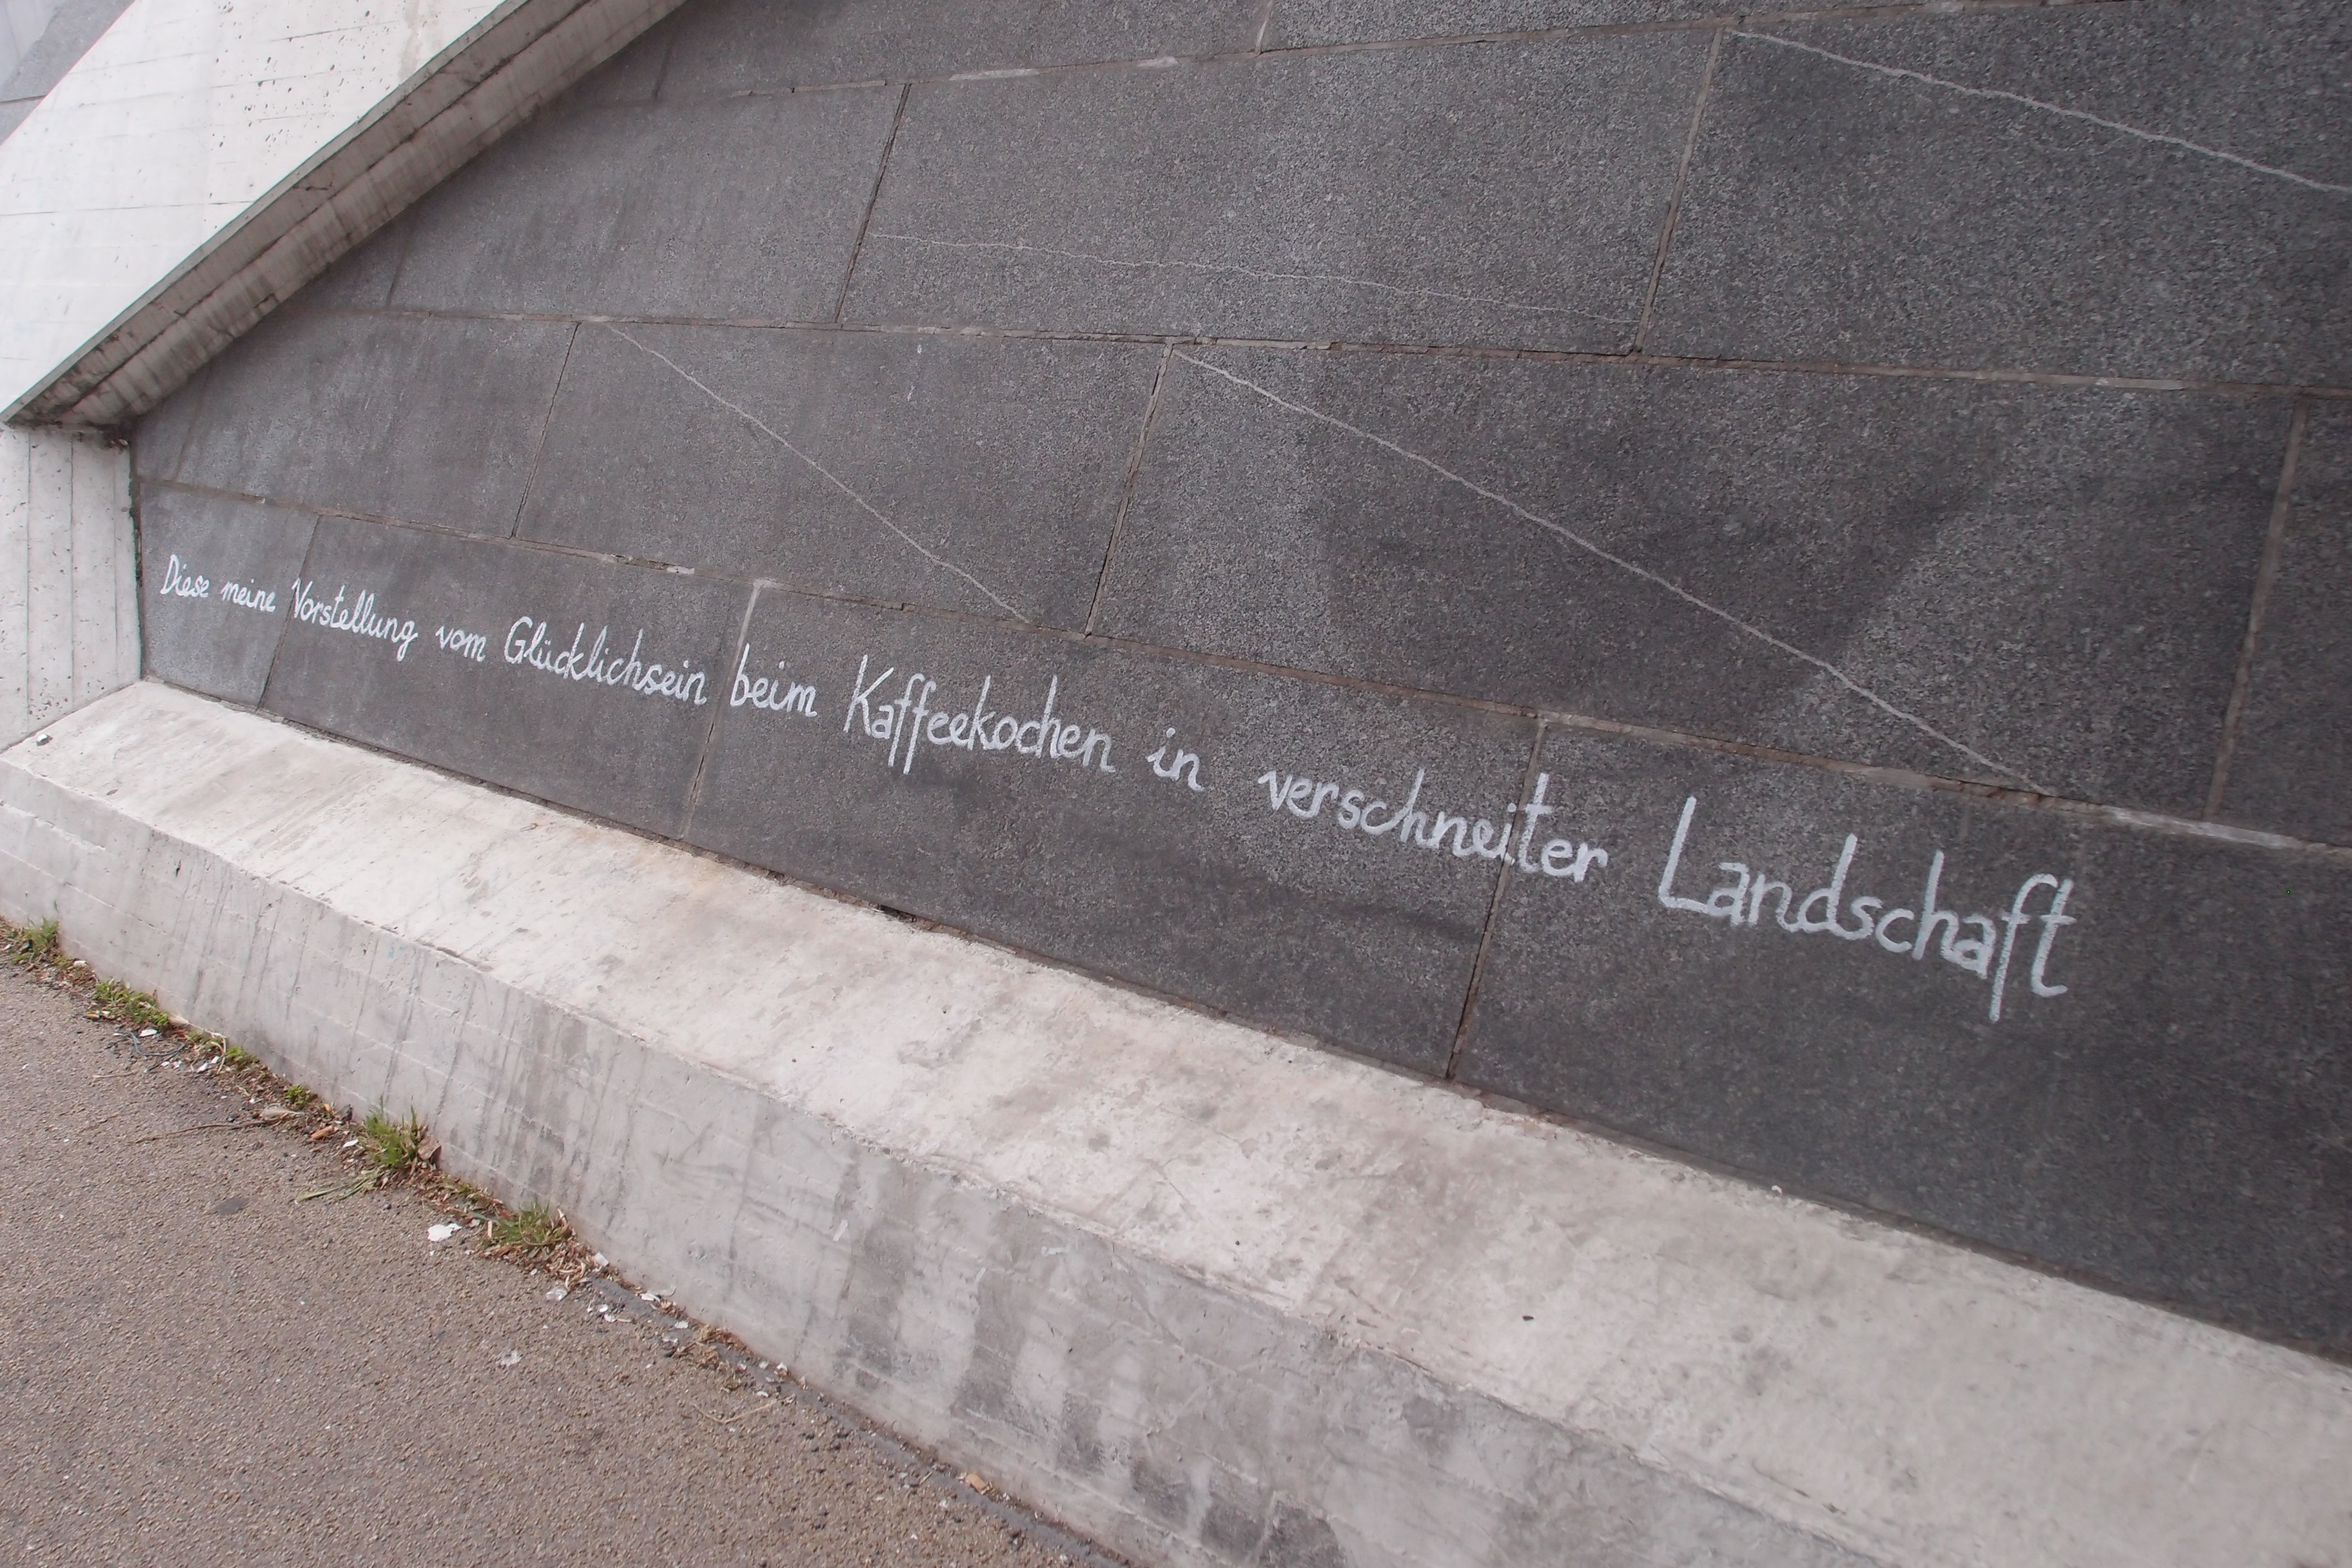 Diese meine Vorstellung vom Glücklichsein beim Kaffeekochen in verschneiter Landschaft